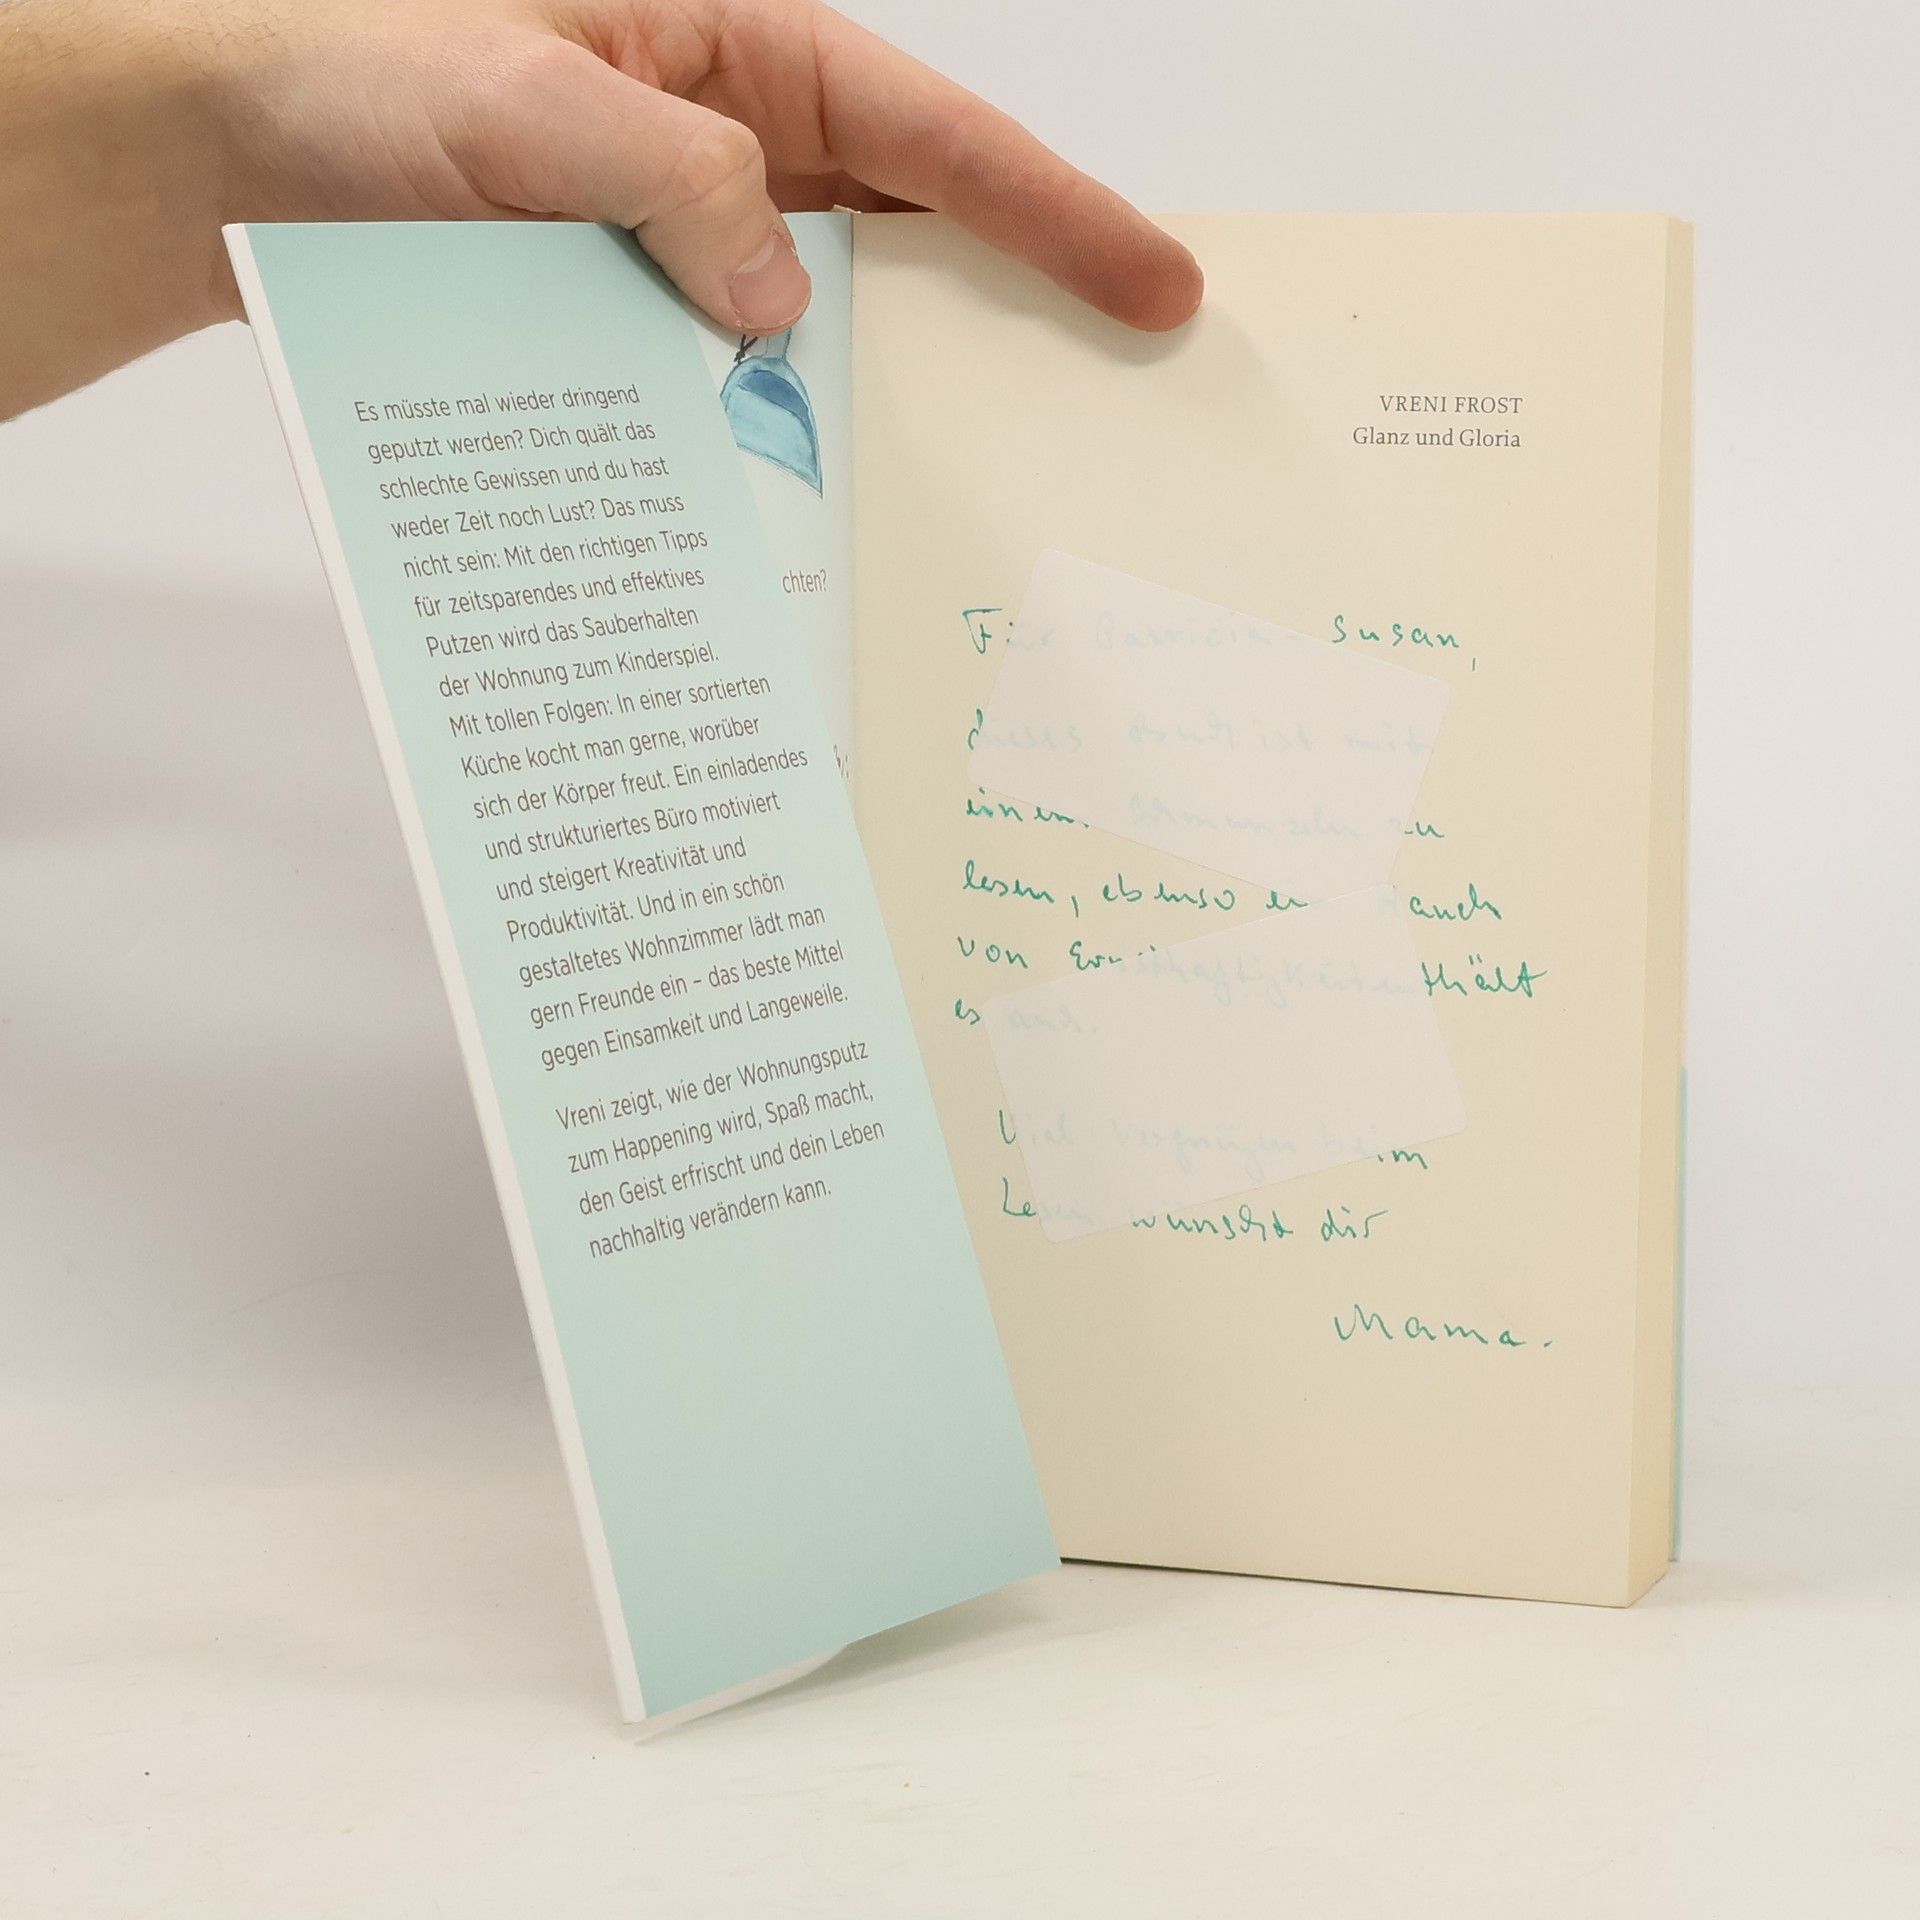 Es müsste mal wieder dringend
geputzt werden? Dich quält das
schlechte Gewissen und du hast
weder Zeit noch Lust? Das muss
nicht sein: Mit den richtigen Tipps
für zeitsparendes und effektives
Putzen wird das Sauberhalten
der Wohnung zum Kinderspiel.
Mit tollen Folgen: In einer sortierten
Küche kocht man gerne, worüber
sich der Körper freut. Ein einladendes
und strukturiertes Büro motiviert
und steigert Kreativität und
Produktivität. Und in ein schön
gestaltetes Wohnzimmer lädt man
gern Freunde ein – das beste Mittel
gegen Einsamkeit und Langeweile.
Vreni zeigt, wie der Wohnungsputz
zum Happening wird, Spaß macht,
den Geist erfrischt und dein Leben
nachhaltig verändern kann.
chten?
VRENI FROST
Glanz und Gloria
Für Patricia - Susan,
dieses Buch ist mit
einem Schmunzeln zu
lesen, ebenso auch
von Ernsthaftigkeit enthält
es auch.
Viel Vergnügen beim
Lesen wünscht dir
Mama.